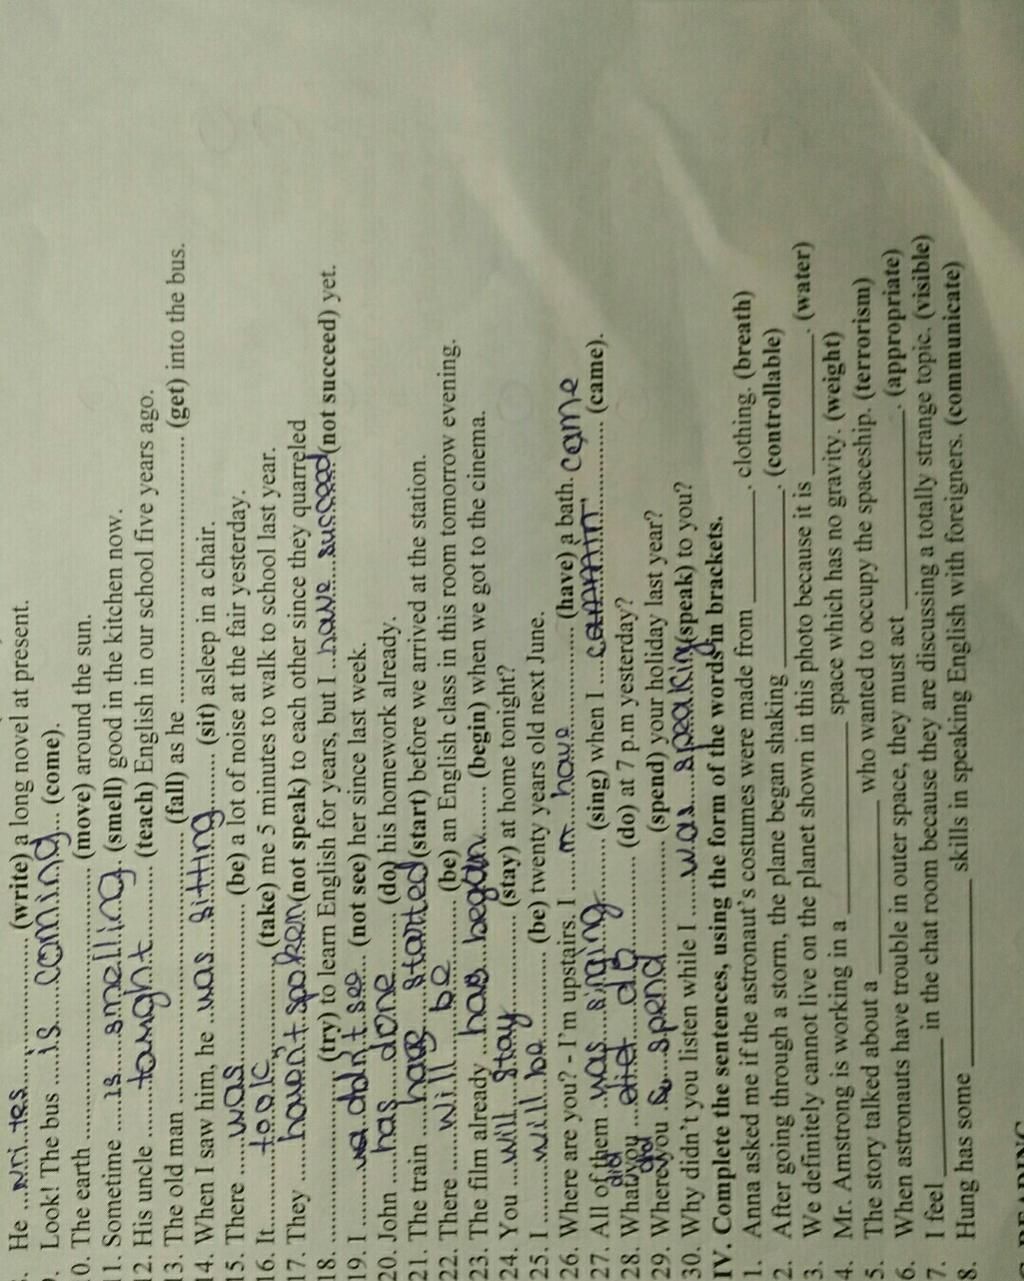 He ...writes............... (write) a long novel at present.
. Look! The bus ....is....coming... (come).
0. The earth ............................ (move) around the sun.
1. Sometime ....is....smelling.. (smell) good in the kitchen now.
12. His uncle ......taught............ (teach) English in our school five years ago.
13. The old man ............................ (fall) as he ............................ (get) into the bus.
14. When I saw him, he ..was....sitting....... (sit) asleep in a chair.
15. There ....was................... (be) a lot of noise at the fair yesterday.
16. It......................(take) me 5 minutes to walk to school last year.
17. They .....havent spoken(not speak) to each other since they quarreled
18. ........................(try) to learn English for years, but I ..have...succeed(not succeed) yet.
19. I ........didn't see... (not see) her since last week.
20. John ....has....done......(do) his homework already.
21. The train ......have started (start) before we arrived at the station.
22. There .....will.....be........ (be) an English class in this room tomorrow evening.
23. The film already ...has..began....... (begin) when we got to the cinema.
24. You ...will....stay............ (stay) at home tonight?
25. I ......will be............. (be) twenty years old next June.
26. Where are you? - I'm upstairs. I .........have............. (have) a bath.
came
27. All of them ..was....singing......... (sing) when I ............................ (came).
did
28. What you ...........do............ (do) at 7 p.m yesterday?
did
29. Where you ......spend................ (spend) your holiday last year?
30. Why didn't you listen while I ......was...speaking(speak) to you?
IV. Complete the sentences, using the form of the words in brackets.
1. Anna asked me if the astronaut's costumes were made from __________. clothing. (breath)
2. After going through a storm, the plane began shaking ______________. (controllable)
3. We definitely cannot live on the planet shown in this photo because it is __________. (water)
4. Mr. Amstrong is working in a ______________ space which has no gravity. (weight)
5. The story talked about a ______________ who wanted to occupy the spaceship. (terrorism)
6. When astronauts have trouble in outer space, they must act ______________. (appropriate)
7. I feel __________ in the chat room because they are discussing a totally strange topic. (visible)
8. Hung has some ______________ skills in speaking English with foreigners. (communicate)